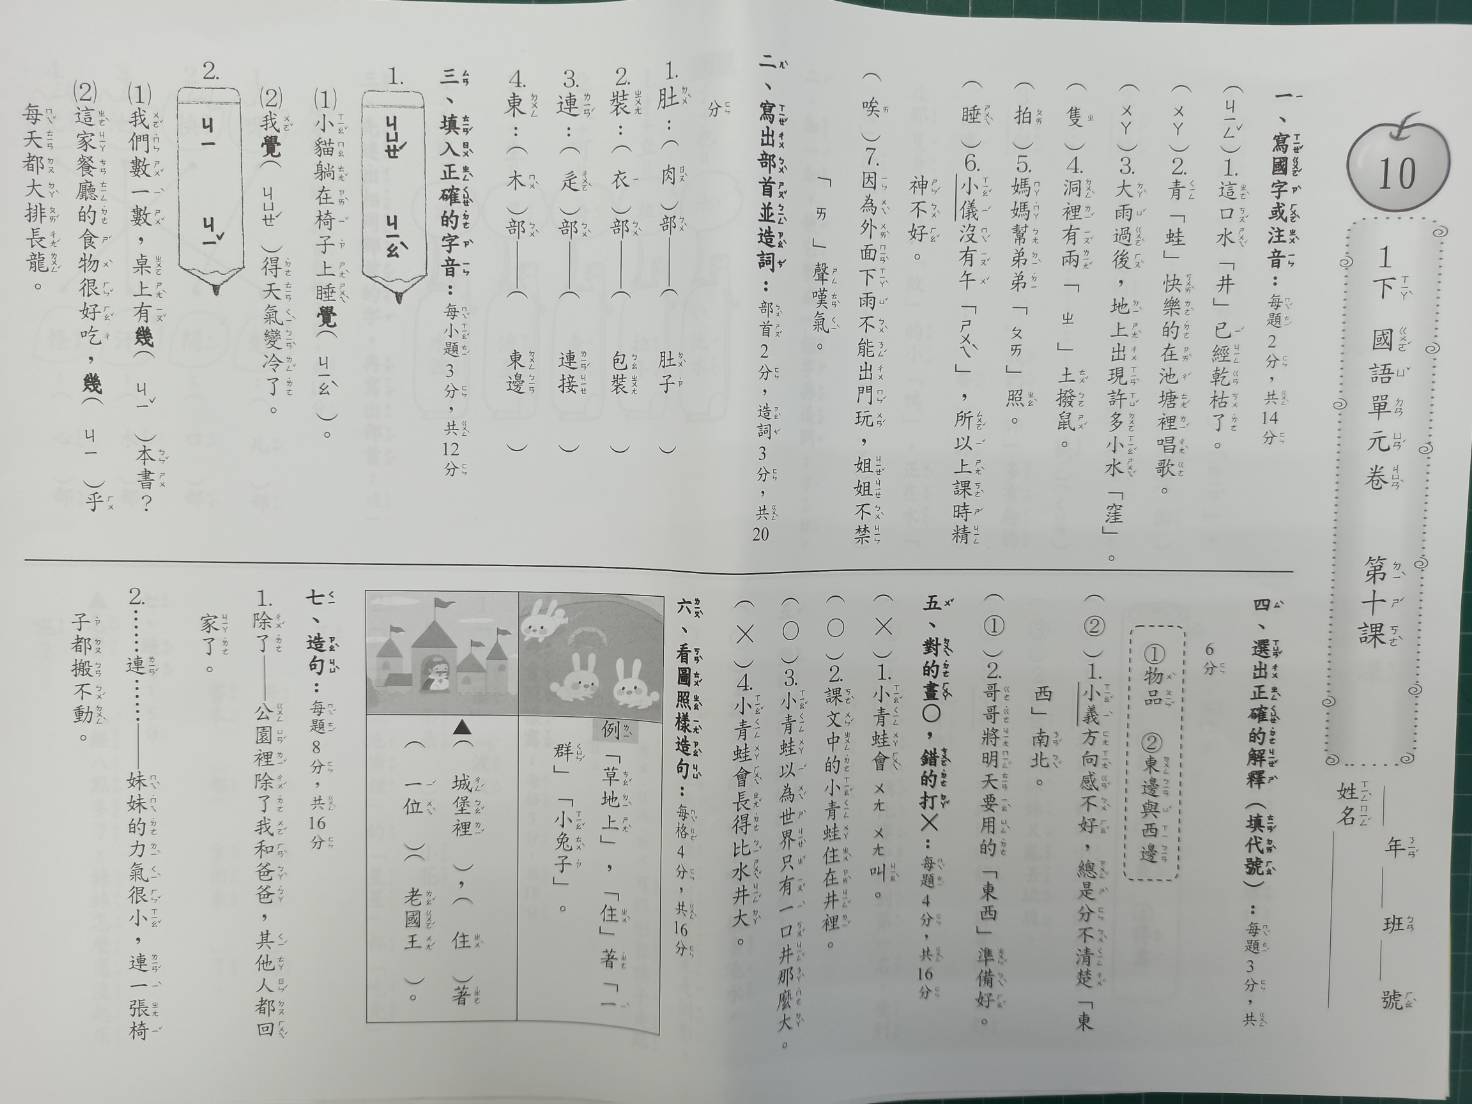 10
1下 國語單元卷 第十課
＿年＿班＿號
姓名
一、寫國字或注音：每題2分，共14分
（ㄐㄧㄥˇ）1.這口水「井」已經乾枯了。
（ㄨㄚ）2.青「蛙」快樂的在池塘裡唱歌。
（ㄨㄚ）3.大雨過後，地上出現許多小水「窪」。
（隻）4.洞裡有兩「ㄓ」土撥鼠。
（拍）5.媽媽幫弟弟「ㄆㄞ」照。
（睡）6.小儀沒有午「ㄕㄨㄟˋ」，所以上課時精
神不好。
（唉）7.因為外面下雨不能出門玩，姐姐不禁
「ㄞ」聲嘆氣。
二、寫出部首並造詞：部首2分，造詞3分，共20
分
1.肚：（肉）部——（肚子）
2.裝：（衣）部——（包裝）
3.連：（辵）部——（連接）
4.東：（木）部——（東邊）
三、填入正確的字音：每小題3分，共12分
1.
ㄐㄩㄝˊ ㄐㄧㄠˋ
⑴小貓躺在椅子上睡覺（ㄐㄧㄠˋ）。
⑵我覺（ㄐㄩㄝˊ）得天氣變冷了。
2.
ㄐㄧ ㄐㄧˇ
⑴我們數一數，桌上有幾（ㄐㄧˇ）本書？
⑵這家餐廳的食物很好吃，幾（ㄐㄧ）乎
每天都大排長龍。
四、選出正確的解釋（填代號）：每題3分，共
6分
①物品 ②東邊與西邊
（②）1.小義方向感不好，總是分不清楚「東
西」南北。
（①）2.哥哥將明天要用的「東西」準備好。
五、對的畫○，錯的打╳：每題4分，共16分
（╳）1.小青蛙會ㄨㄤ ㄨㄤ叫。
（○）2.課文中的小青蛙住在井裡。
（○）3.小青蛙以為世界只有一口井那麼大。
（╳）4.小青蛙會長得比水井大。
六、看圖照樣造句：每格4分，共16分
例「草地上」，「住」著「一
群」「小兔子」。
▲（城堡裡），（住）著
（一位）（老國王）。
七、造句：每題8分，共16分
1.除了——公園裡除了我和爸爸，其他人都回
家了。
2.……連……——妹妹的力氣很小，連一張椅
子都搬不動。